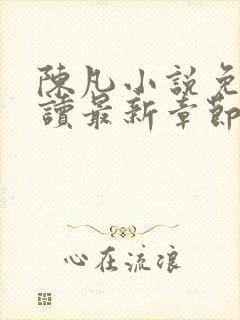 陳凡小說免
讀最新章節
心在流浪